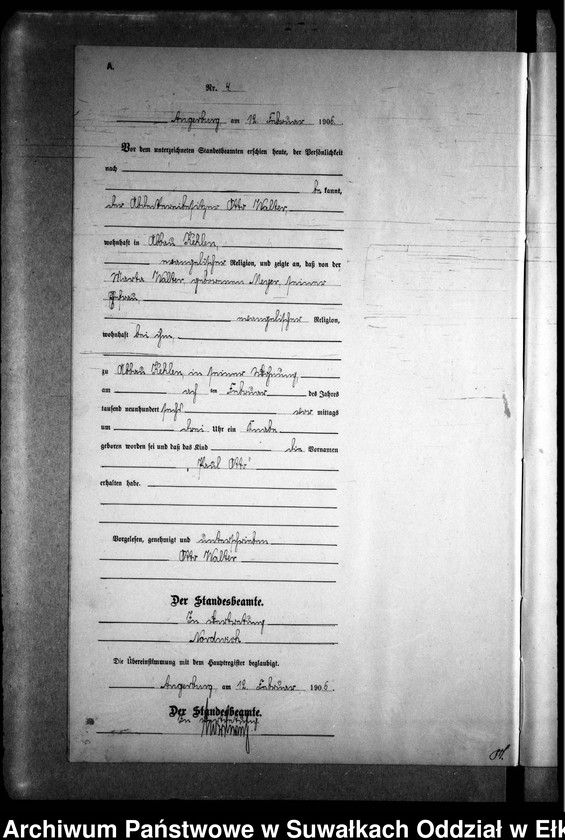 A.
Nr. 4
Angerburg, am 12. Februar 1906.
Vor dem unterzeichneten Standesbeamten erschien heute, der Persönlichkeit
nach
be kannt,
der Otto Walter,
wohnhaft in Abbau Kehlen,
evangelischer Religion, und zeigte an, daß von der
Marta Walter, geborenen Meyer, seiner
Ehefrau,
evangelischer Religion,
wohnhaft bei ihm,
zu Abbau Kehlen, in seiner Wohnung,
am acht ten Februar des Jahres
tausend neunhundert sechs vor mittags
um drei Uhr ein Knabe
geboren worden sei und daß das Kind die Vornamen
„Paul Otto“
erhalten habe.
Vorgelesen, genehmigt und unterschrieben
Otto Walter
Der Standesbeamte.
In Vertretung
Die Übereinstimmung mit dem Hauptregister beglaubigt.
Angerburg, am 12. Februar 1906.
Der Standesbeamte.
In Vertretung
Archiwum Państwowe w Suwałkach Oddział w Ełk